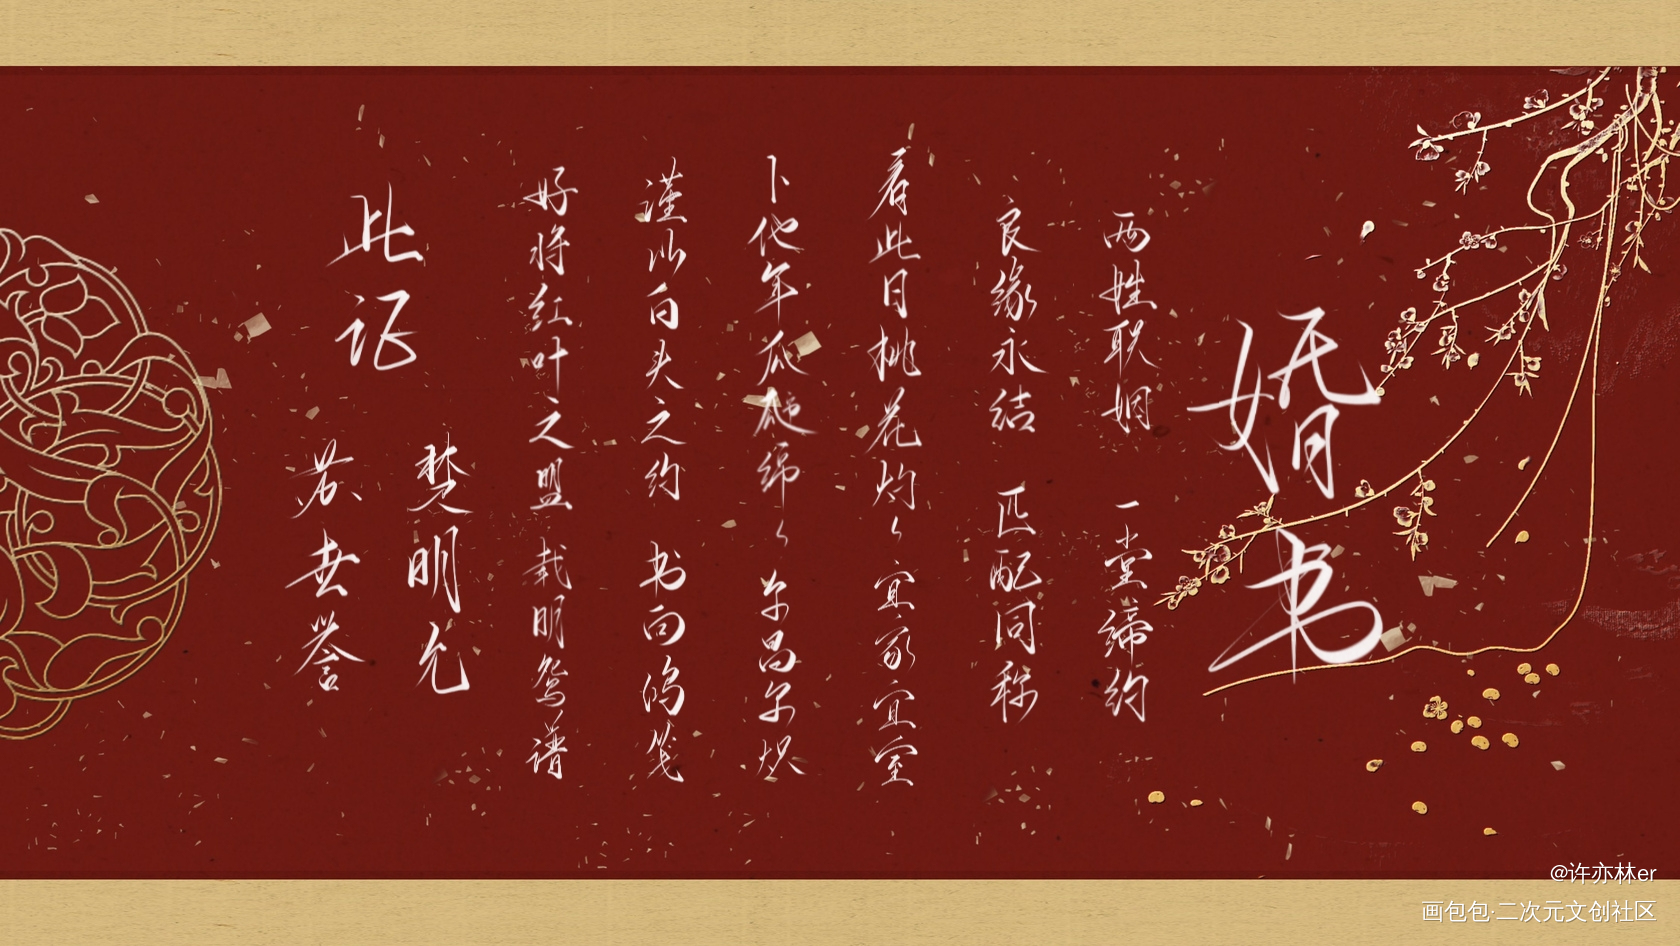 婚书
两姓联姻 一堂缔约
良缘永结 匹配同称
看此日桃花灼灼 宜家宜室
卜他年瓜瓞绵绵 尔昌尔炽
谨以白头之约 书向鸿笺
好将红叶之盟 载明鸳谱
此证
楚明允
苏世誉
@许亦林er
画包包·二次元文创社区